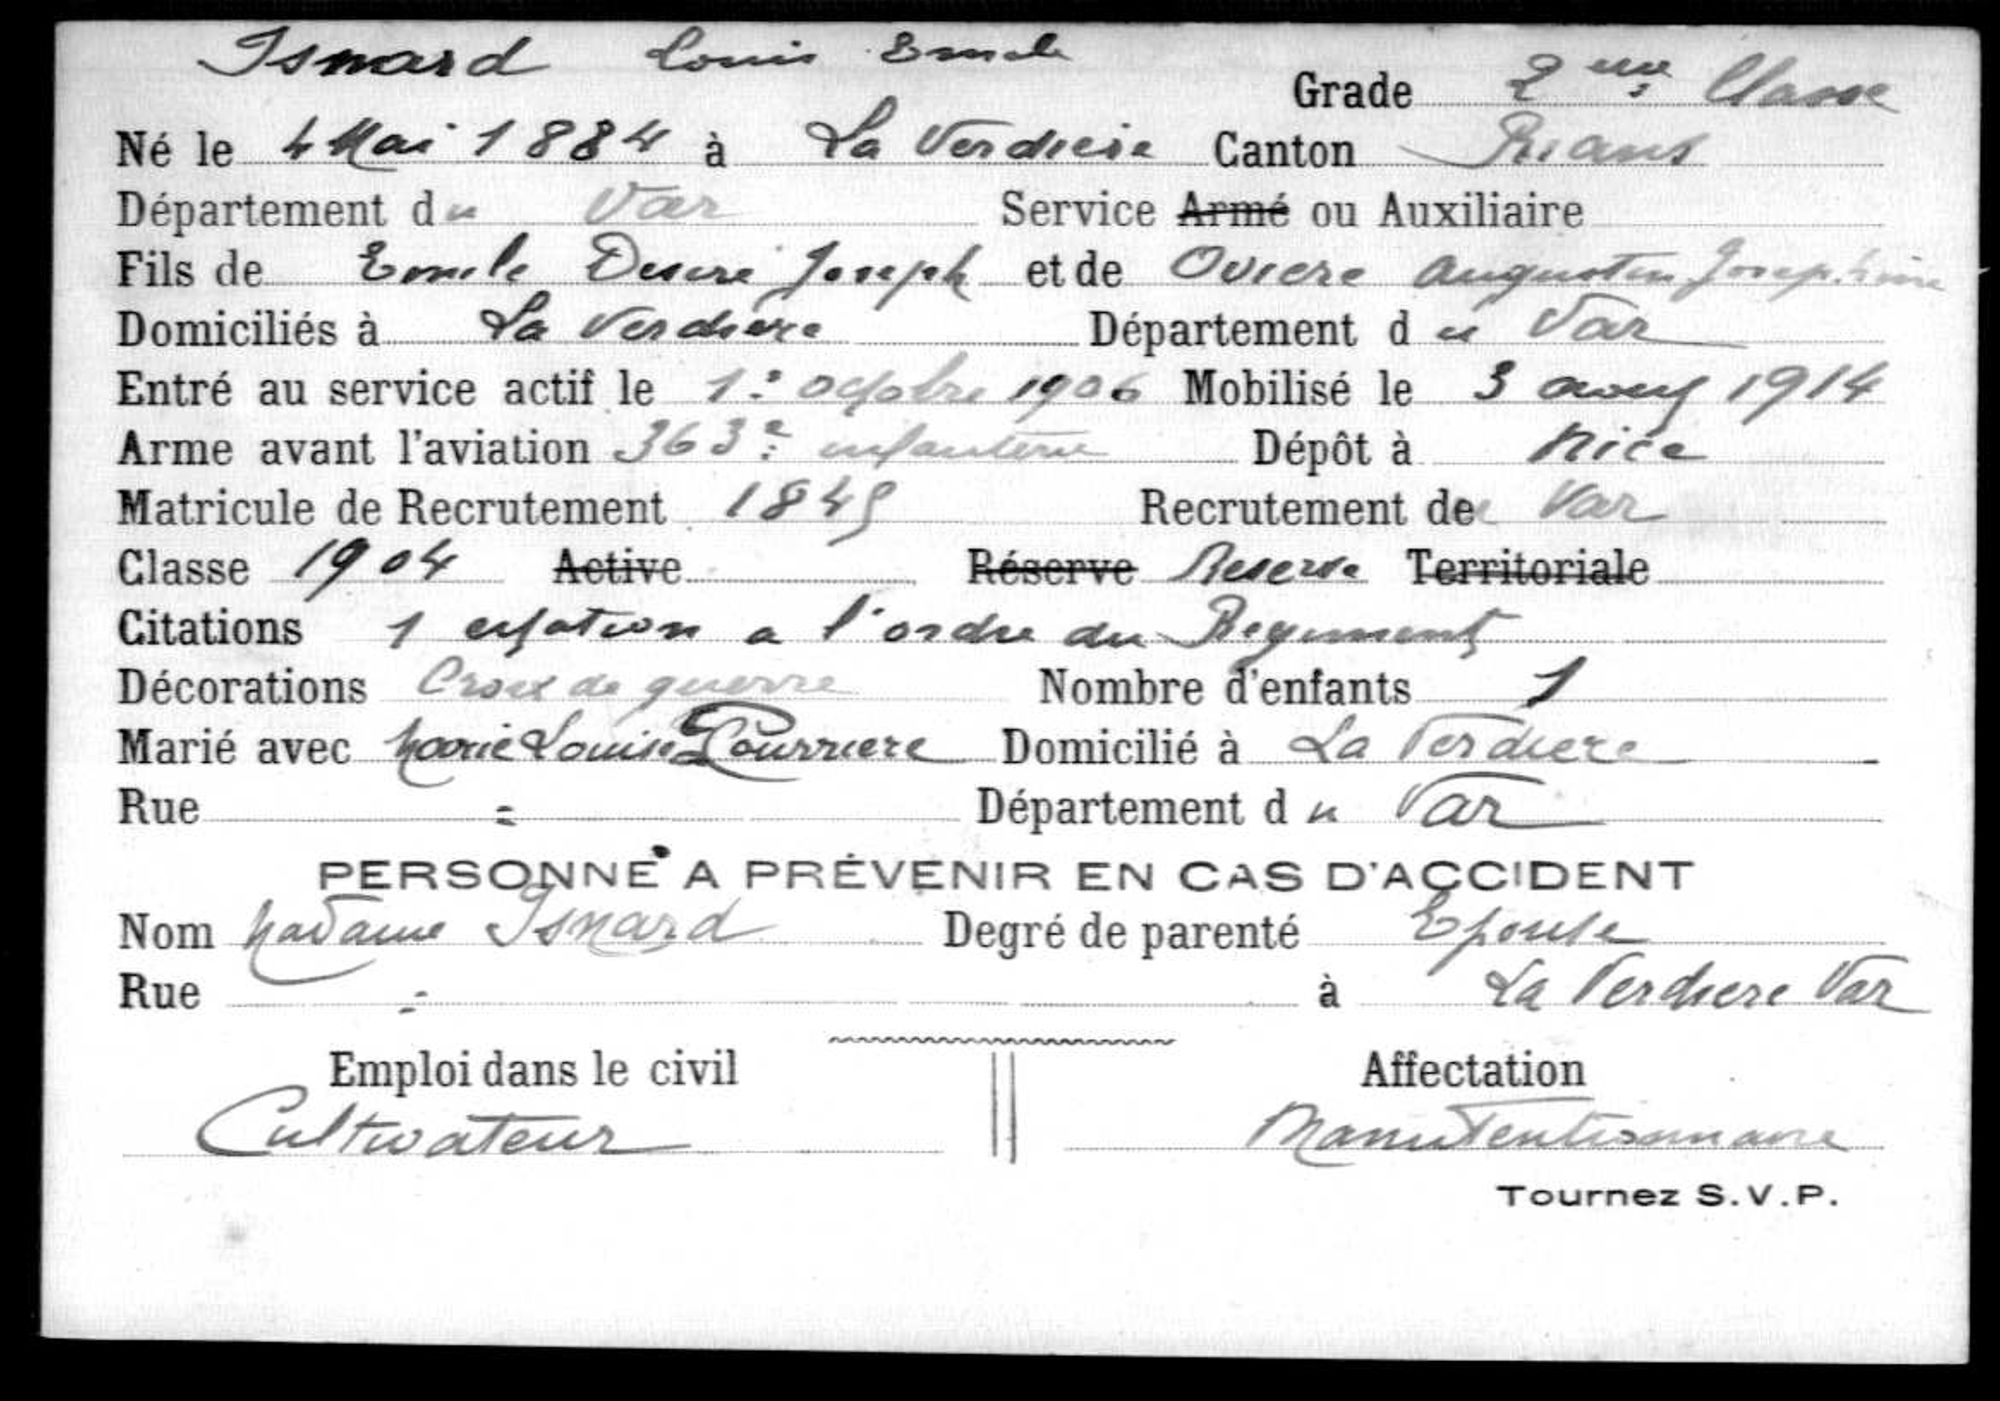 Isnard Louis Emile
Grade 2eme Classe
Né le 4 Mai 1884 à La Verdiere Canton Rians
Département du Var Service Armé ou Auxiliaire
Fils de Emile Desire Joseph et de Oviere Augustin Josephine
Domiciliés à La Verdiere Département du Var
Entré au service actif le 1: octobre 1906 Mobilisé le 3 aout 1914
Arme avant l'aviation 363e infanterie Dépôt à Nice
Matricule de Recrutement 1845 Recrutement de Var
Classe 1904 Active Réserve Reserve Territoriale
Citations 1 citation a l'ordre du Regiment
Décorations Croix de guerre Nombre d'enfants 1
Marié avec Marie Louise Pourriere Domicilié à La Verdiere
Rue = Département du Var
PERSONNE A PRÉVENIR EN CAS D'ACCIDENT
Nom Madame Isnard Degré de parenté Epouse
Rue = à La Verdiere Var
Emploi dans le civil Affectation
Cultivateur Manutentionnaire
Tournez S.V.P.